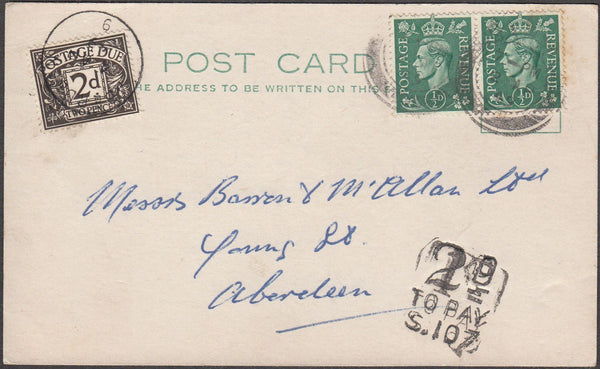 6
POSTAGE DUE
2d
TWO PENCE
POST CARD
THE ADDRESS TO BE WRITTEN ON THIS
POSTAGE ½D REVENUE
POSTAGE ½D REVENUE
Messrs Barron & McAllan Ltd
Young St.
Aberdeen
2D
TO PAY
S.107